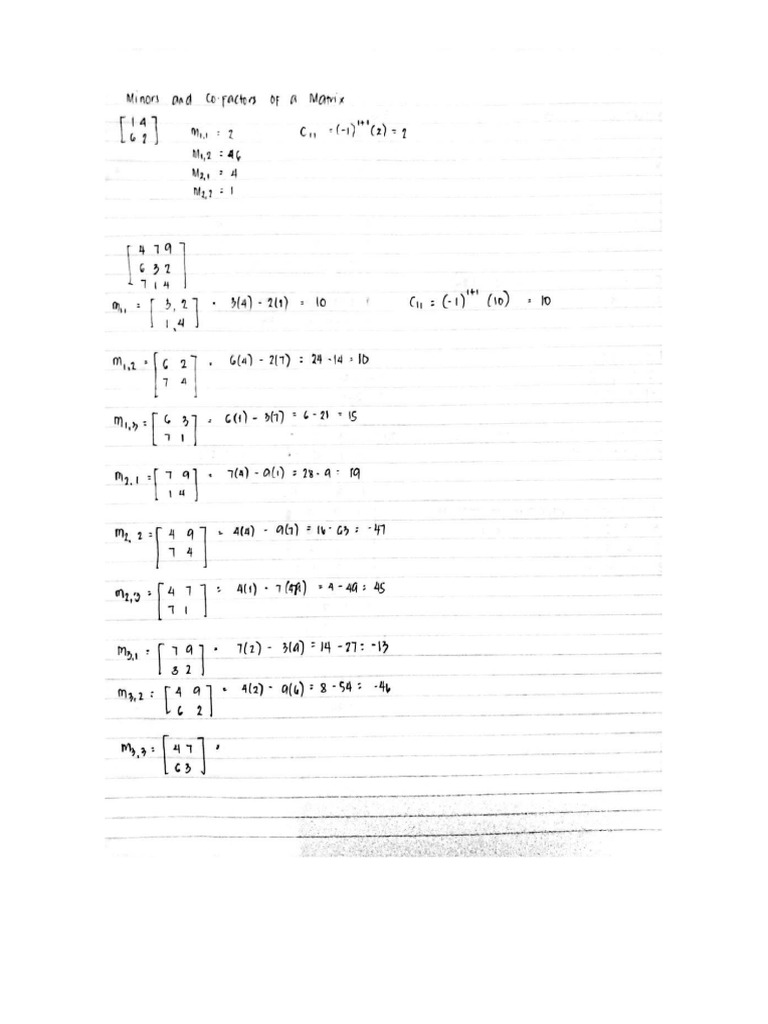 Minors and Co-factors of a Matrix
[1 4
6 2] M1,1 = 2 C11 = (-1)^1+1 (2) = 2
M1,2 = 46
M2,1 = 4
M2,2 = 1
[4 7 9
6 3 2
7 1 4]
M11 = [3, 2 • 3(4) - 2(1) = 10 C11 = (-1)^1+1 (10) = 10
1, 4]
M1,2 = [6 2 • 6(4) - 2(7) = 24 - 14 = 10
7 4]
M1,3 = [6 3 = 6(1) - 3(7) = 6 - 21 = 15
7 1]
M2,1 = [7 9 = 7(4) - 9(1) = 28 - 9 = 19
1 4]
M2,2 = [4 9 = 4(4) - 9(7) = 16 - 63 = -47
7 4]
M2,3 = [4 7 = 4(1) - 7( ) = 4 - 49 = 45
7 1]
M3,1 = [7 9 • 7(2) - 3(9) = 14 - 27 = -13
3 2]
M3,2 = [4 9 = 4(2) - 9(6) = 8 - 54 = -46
6 2]
M3,3 = [4 7 •
6 3]